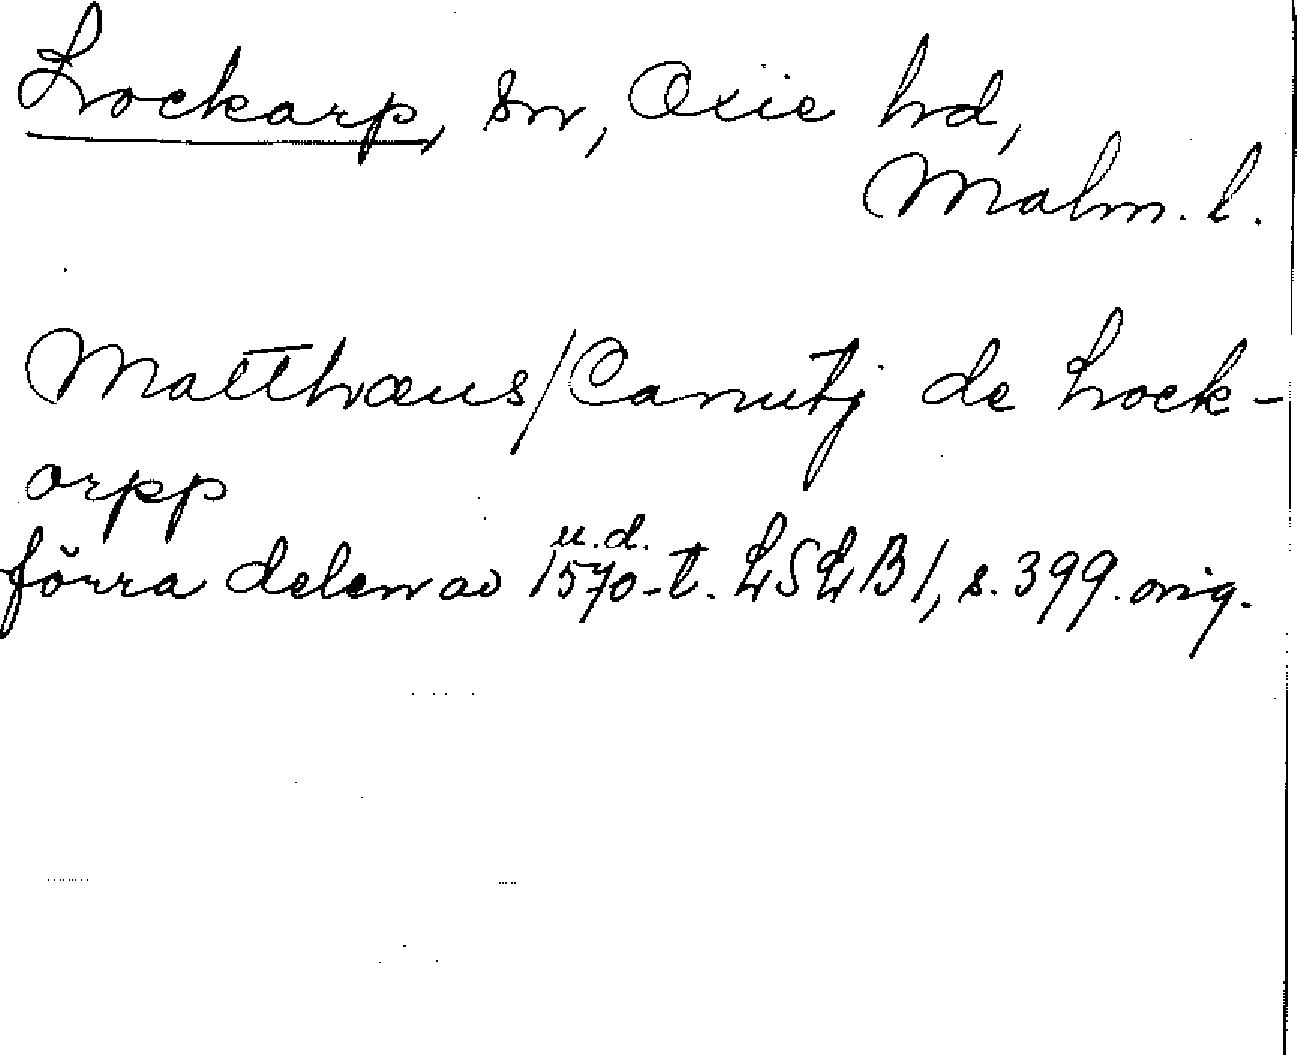 Lockarp, sn, Oxie hd,
Malm. l.
Matthæus/Canutj de Lock-
arpp
u.d.
förra delen av 1570-t. LSLB1, s. 399. orig.